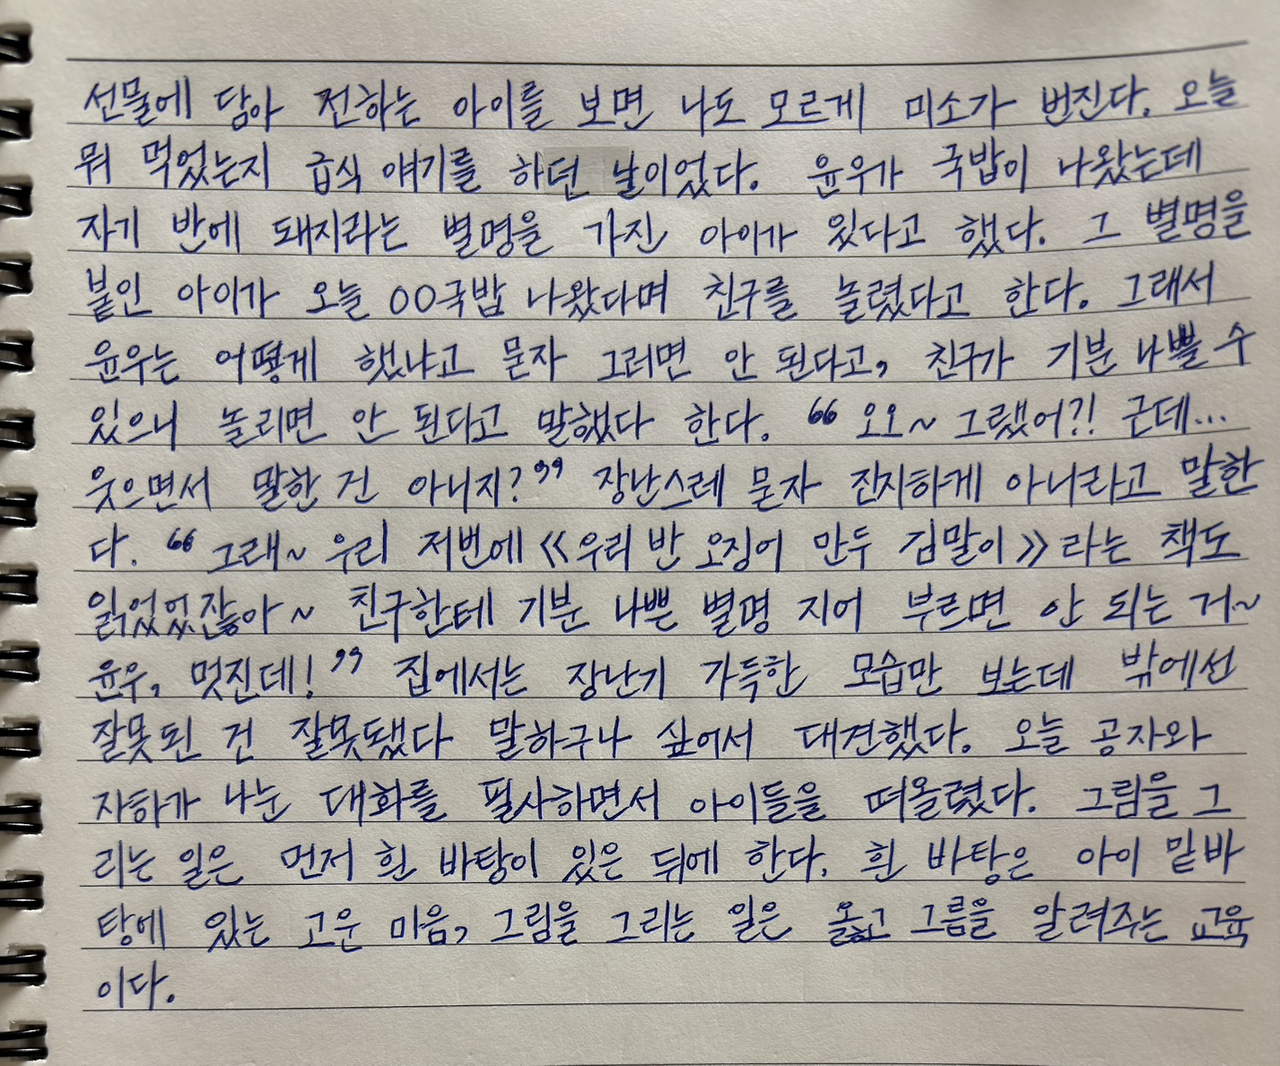 선물에 담아 전하는 아이를 보면 나도 모르게 미소가 번진다. 오늘
뭐 먹었는지 급식 얘기를 하던 날이었다. 윤우가 국밥이 나왔는데
자기 반에 돼지라는 별명을 가진 아이가 있다고 했다. 그 별명을
붙인 아이가 오늘 OO국밥 나왔다며 친구를 놀렸다고 한다. 그래서
윤우는 어떻게 했냐고 묻자 그러면 안 된다고, 친구가 기분 나쁠 수
있으니 놀리면 안 된다고 말했다 한다. “오오~ 그랬어?! 근데...
웃으면서 말한 건 아니지?” 장난스레 묻자 진지하게 아니라고 말한
다. “그래~ 우리 저번에 《우리 반 오징어 만두 김말이》라는 책도
읽었었잖아~ 친구한테 기분 나쁜 별명 지어 부르면 안 되는 거~
윤우, 멋진데!” 집에서는 장난기 가득한 모습만 보는데 밖에선
잘못된 건 잘못됐다 말하구나 싶어서 대견했다. 오늘 공자와
자하가 나눈 대화를 필사하면서 아이들을 떠올렸다. 그림을 그
리는 일은 먼저 흰 바탕이 있은 뒤에 한다. 흰 바탕은 아이 밑바
탕에 있는 고운 마음, 그림을 그리는 일은 옳고 그름을 알려주는 교육
이다.